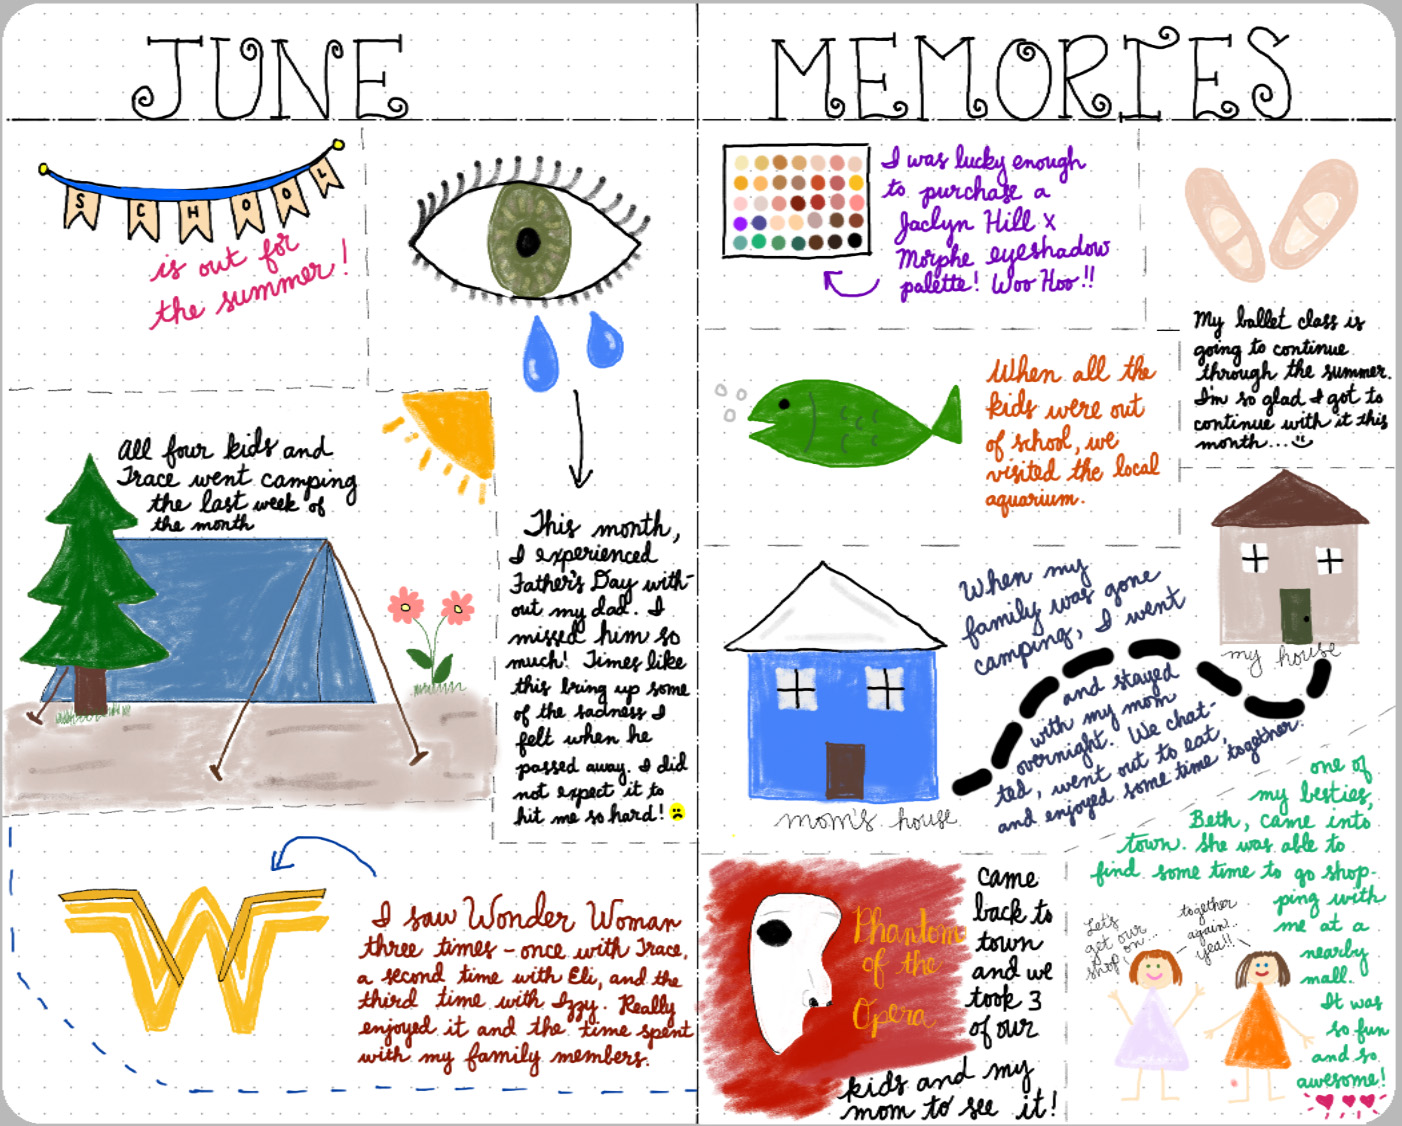 JUNE
MEMORIES
SCHOOL
is out for
the summer!
This month,
I experienced
Father's Day with-
out my dad. I
missed him so
much! Times like
this bring up some
of the sadness I
felt when he
passed away. I did
not expect it to
hit me so hard!
All four kids and
Trace went camping
the last week of
the month
I saw Wonder Woman
three times - once with Trace,
a second time with Eli, and the
third time with Izzy. Really
enjoyed it and the time spent
with my family members.
I was lucky enough
to purchase a
Jaclyn Hill x
Morphe eyeshadow
palette! Woo Hoo!!
My ballet class is
going to continue
through the summer.
I'm so glad I got to
continue with it this
month...
When all the
kids were out
of school, we
visited the local
aquarium.
my house
When my
family was gone
camping, I went
and stayed
with my mom
overnight. We chat-
ted, went out to eat,
and enjoyed some time together.
mom's house
Phantom
of the
Opera
came
back to
town
and we
took 3
of our
kids and my
mom to see it!
one of
my besties,
Beth, came into
town. She was able to
find some time to go shop-
ping with
me at a
nearby
mall.
It was
so fun
and so
awesome!
Let's
get our
shop on...
together
again!..
yea!!